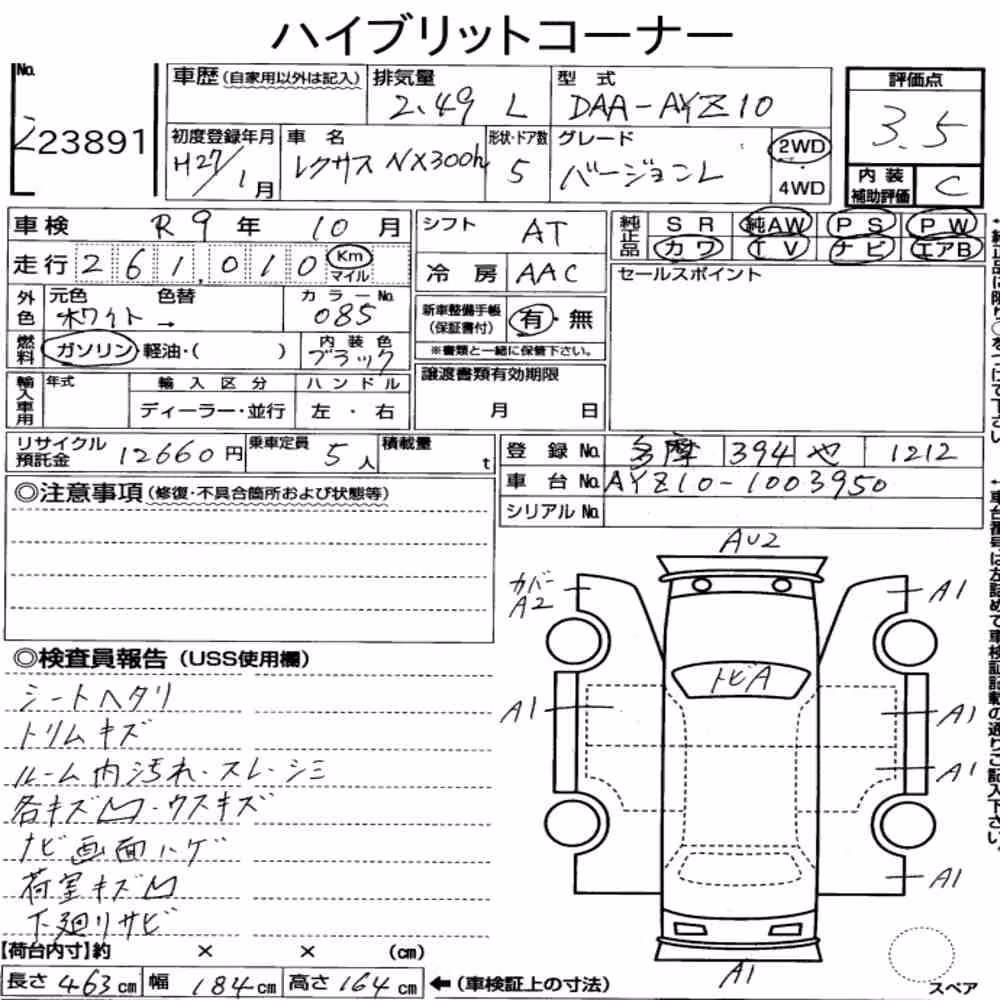 ハイブリットコーナー
No.
223891
車歴(自家用以外は記入)
排気量
2.49 L
型式
DAA-AYZ10
評価点
3.5
初度登録年月
H27/1月
車名
レクサス NX300h
形状・ドア数
5
グレード
バージョンL
2WD
4WD
内装補助評価
C
車検 R9年 10月
シフト AT
純正品
SR 純AW PS PW
カワ TV ナビ エアB
走行 261,010 Km
マイル
冷房 AAC
セールスポイント
外色
元色 色替 カラーNo.
ホワイト → 085
新車整備手帳
(保証書付)
有・無
※書類と一緒に保管下さい。
燃料
ガソリン・軽油・( )
内装色
ブラック
譲渡書類有効期限
月 日
輸入車用
年式 輸入区分 ハンドル
ディーラー・並行 左・右
リサイクル
預託金
12660円
乗車定員
5人
積載量
t
登録No. 多摩 394 也 1212
車台No. AYZ10-1003950
シリアルNo.
◎注意事項(修復・不具合箇所および状態等)
AU2
カバー
A2
A1
トビA
A1
A1
A1
A1
A1
スペア
◎検査員報告(USS使用欄)
シートヘタリ
トリムキズ
ルーム内汚れ・スレ・シミ
各キズ凹・ウスキズ
ナビ画面ハゲ
荷室キズ凹
下廻りサビ
【荷台内寸】約 × × (cm)
長さ 463cm 幅 184cm 高さ 164cm ←(車検証上の寸法)